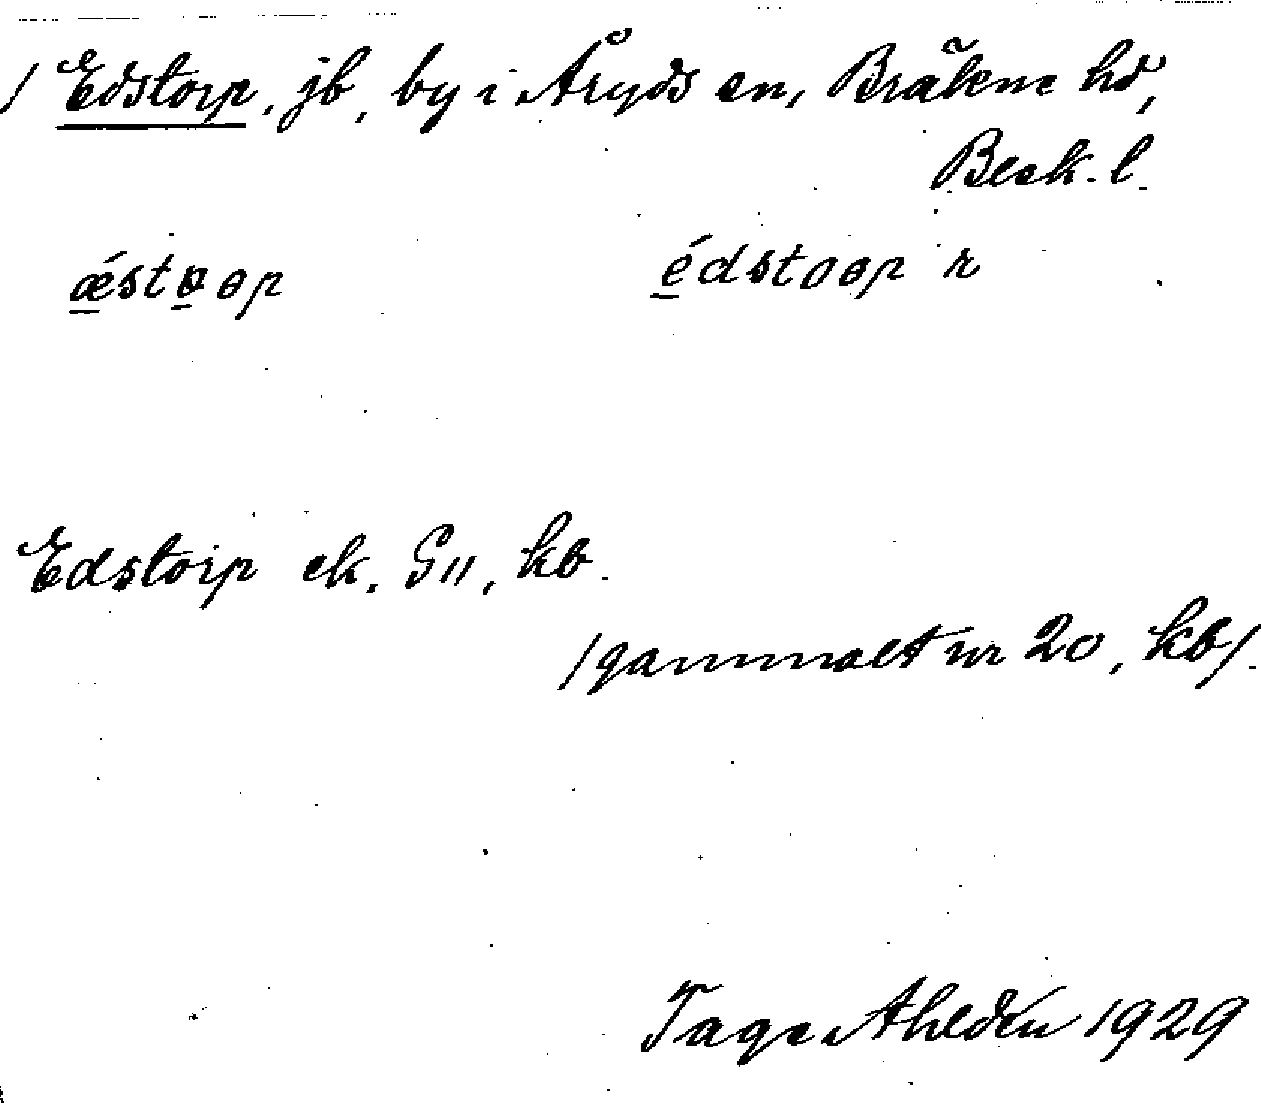 / Edstorp, jb, by i Åryds sn, Bräkne hd,
Blek. l.
ǽstɒop édstoop r
Edstorp ek. G11, kb.
/gammalt nr 20, kb/.
Tage Ahldén 1929